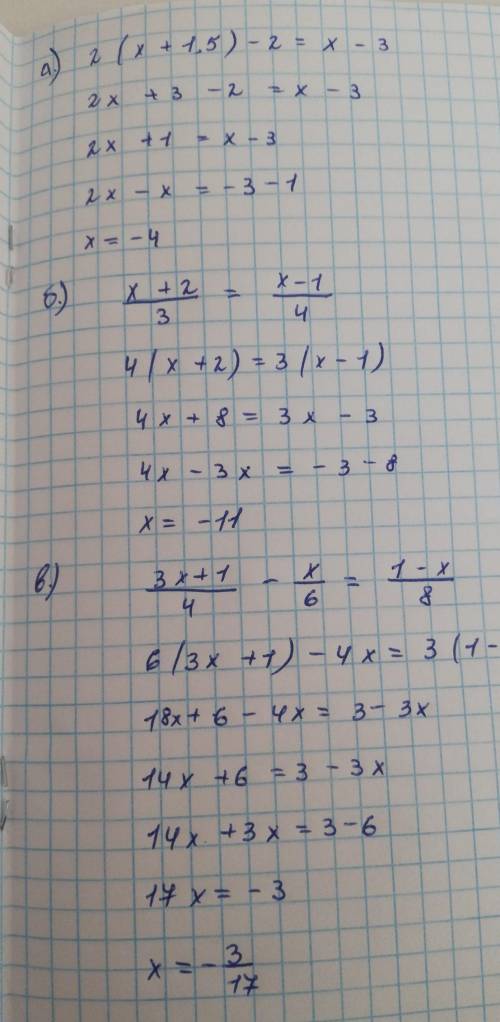 а.) 2 (x + 1.5) - 2 = x - 3
2x + 3 - 2 = x - 3
2x + 1 = x - 3
2x - x = -3 - 1
x = -4
б.) (x + 2)/3 = (x - 1)/4
4 (x + 2) = 3 (x - 1)
4x + 8 = 3x - 3
4x - 3x = -3 - 8
x = -11
в.) (3x + 1)/4 - x/6 = (1 - x)/8
6 (3x + 1) - 4x = 3 (1 -
18x + 6 - 4x = 3 - 3x
14x + 6 = 3 - 3x
14x + 3x = 3 - 6
17x = -3
x = - 3/17